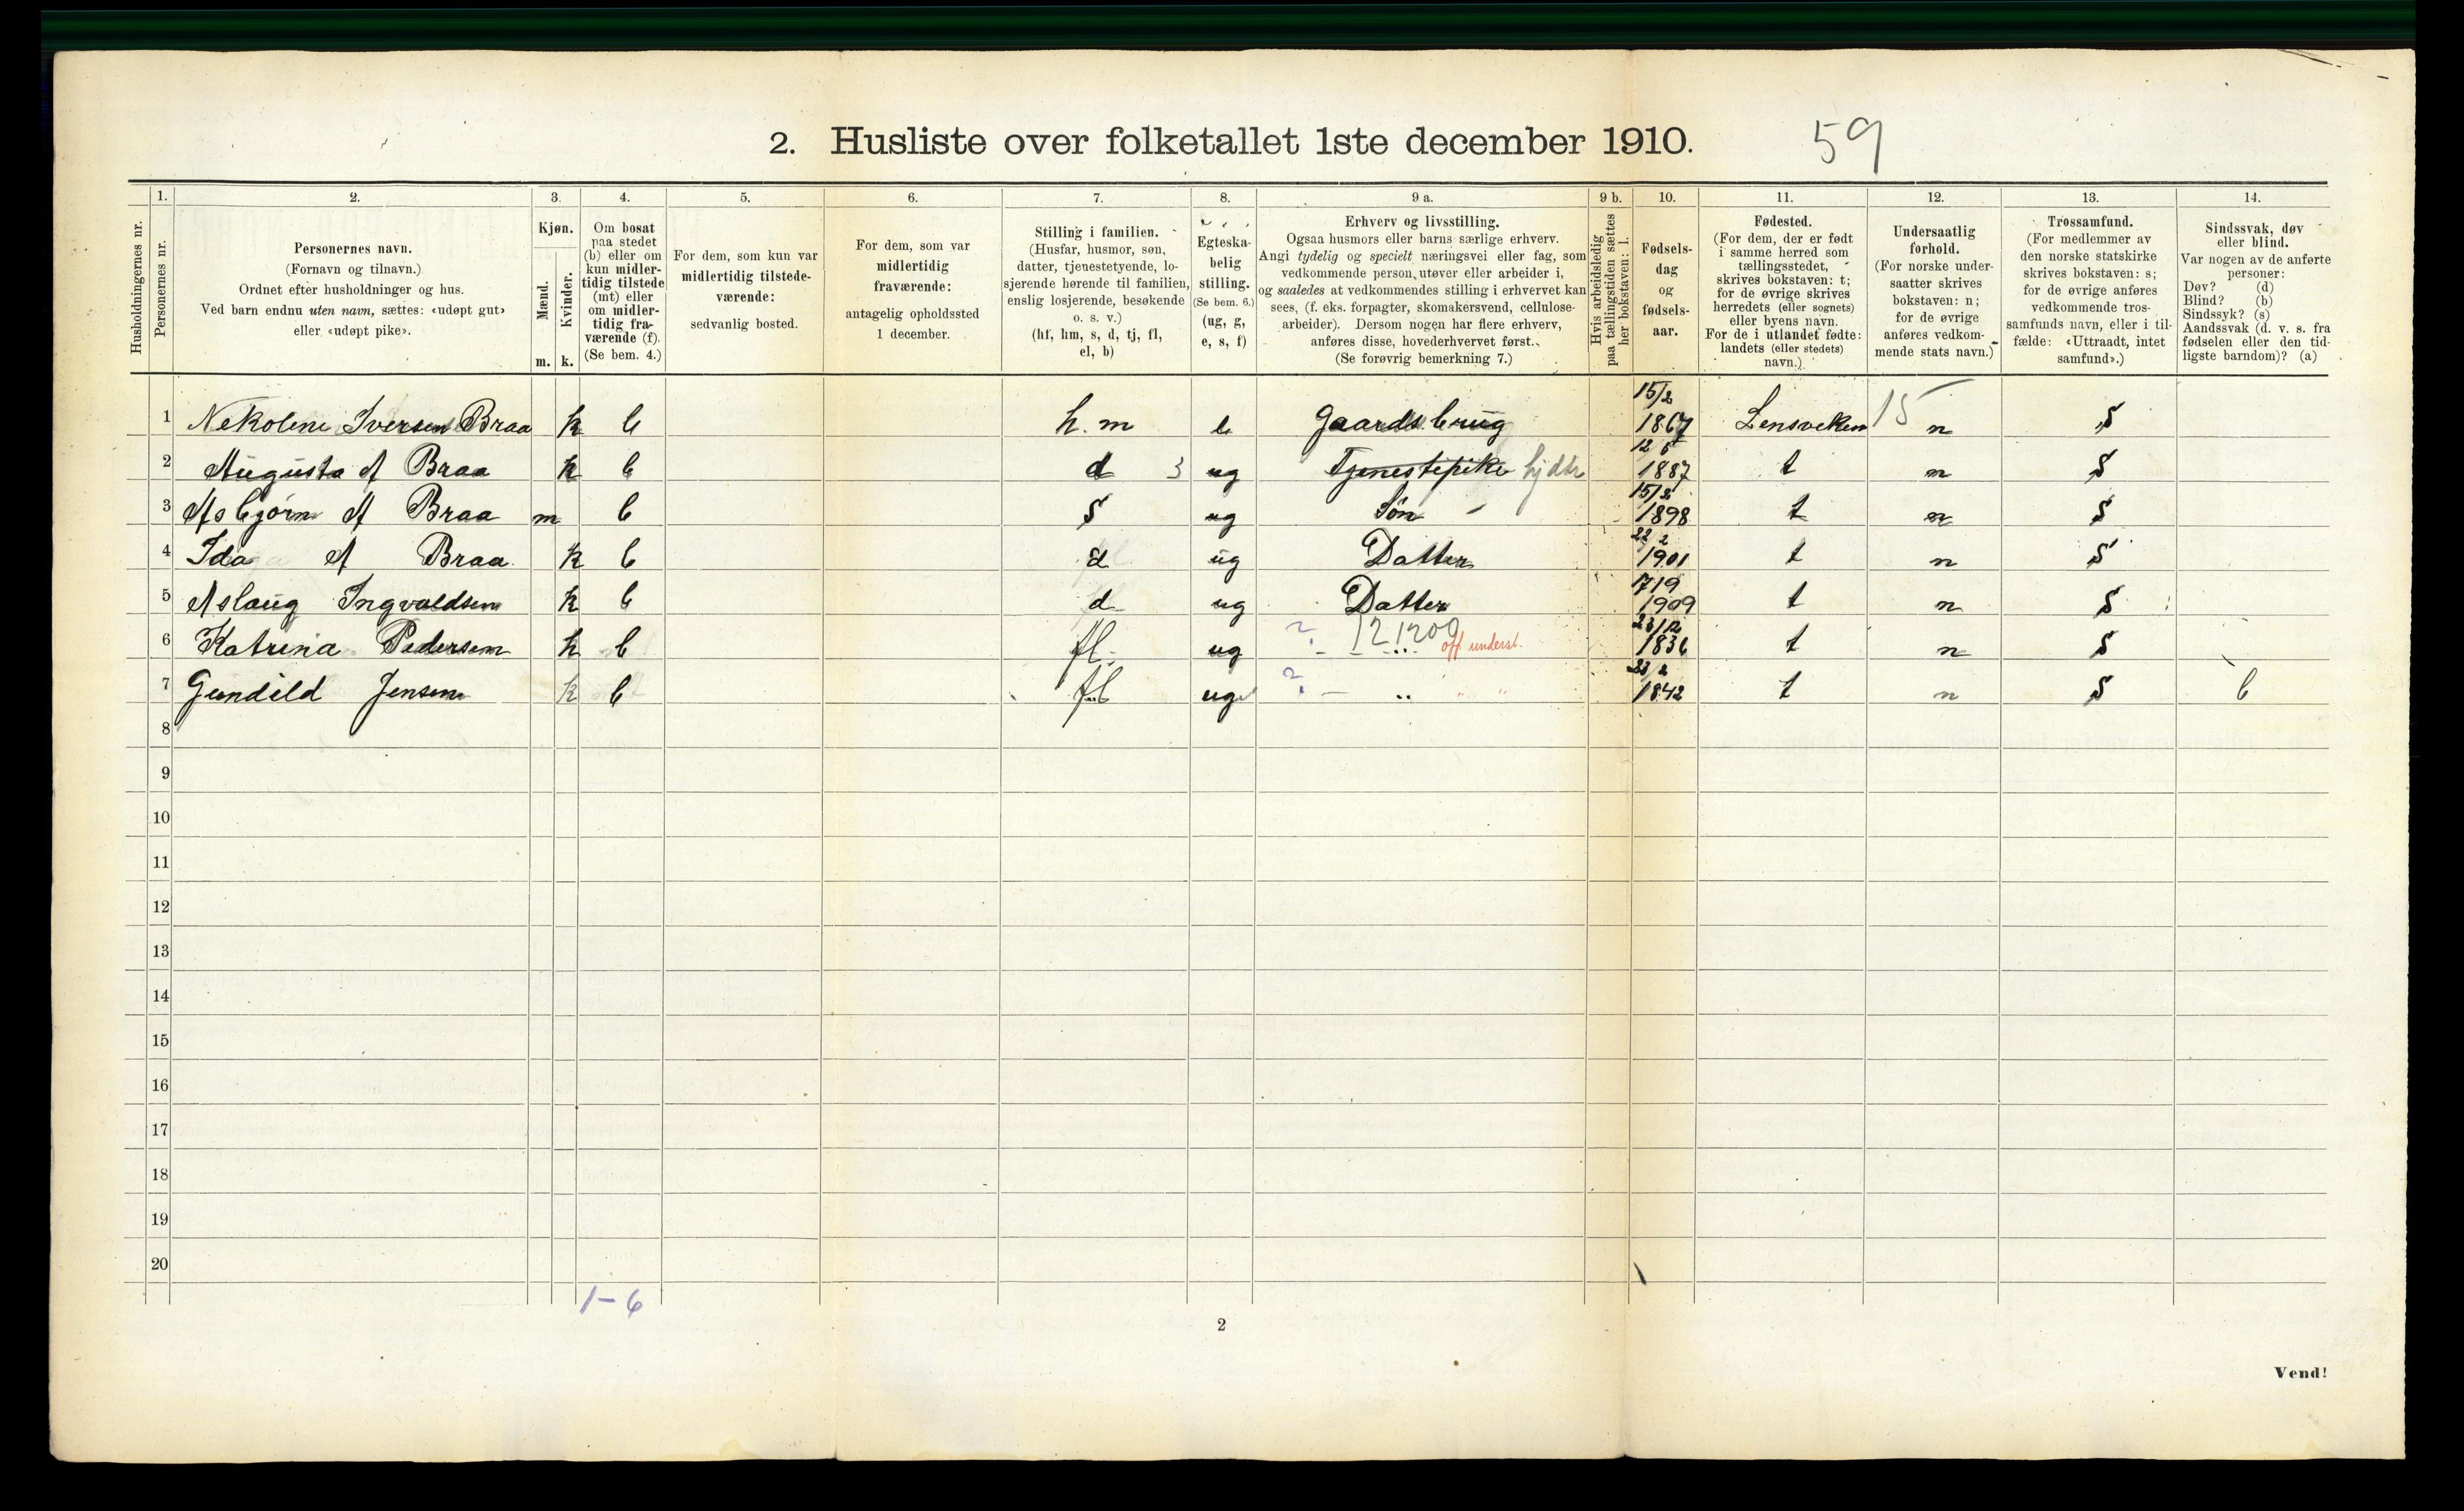 2. Husliste over folketallet 1ste december 1910. 59
Husholdningernes nr.
1. Personernes nr.
2. Personernes navn.
(Fornavn og tilnavn.)
Ordnet efter husholdninger og hus.
Ved barn endnu uten navn, sættes: «udøpt gut»
eller «udøpt pike».
3. Kjøn.
Mænd. m.
Kvinder. k.
4. Om bosat
paa stedet
(b) eller om
kun midler-
tidig tilstede
(mt) eller
om midler-
tidig fra-
værende (f).
(Se bem. 4.)
5. For dem, som kun var
midlertidig tilstede-
værende:
sedvanlig bosted.
6. For dem, som var
midlertidig
fraværende:
antagelig opholdssted
1 december.
7. Stilling i familien.
(Husfar, husmor, søn,
datter, tjenestetyende, lo-
sjerende hørende til familien,
enslig losjerende, besøkende
o. s. v.)
(hf, hm, s, d, tj, fl,
el, b)
8. Egteska-
belig
stilling.
(Se bem. 6.)
(ug, g,
e, s, f)
9 a. Erhverv og livsstilling.
Ogsaa husmors eller barns særlige erhverv.
Angi tydelig og specielt næringsvei eller fag, som
vedkommende person utøver eller arbeider i,
og saaledes at vedkommendes stilling i erhvervet kan
sees, (f. eks. forpagter, skomakersvend, cellulose-
arbeider). Dersom nogen har flere erhverv,
anføres disse, hovederhvervet først.
(Se forøvrig bemerkning 7.)
9 b. Hvis arbeidsledig
paa tællingstiden sættes
her bokstaven: l.
10. Fødsels-
dag
og
fødsels-
aar.
11. Fødested.
(For dem, der er født
i samme herred som
tællingsstedet,
skrives bokstaven: t;
for de øvrige skrives
herredets (eller sognets)
eller byens navn.
For de i utlandet fødte:
landets (eller stedets)
navn.)
12. Undersaatlig
forhold.
(For norske under-
saatter skrives
bokstaven: n;
for de øvrige
anføres vedkom-
mende stats navn.)
13. Trossamfund.
(For medlemmer av
den norske statskirke
skrives bokstaven: s;
for de øvrige anføres
vedkommende tros-
samfunds navn, eller i til-
fælde: «Uttraadt, intet
samfund».)
14. Sindssvak, døv
eller blind.
Var nogen av de anførte
personer:
Døv? (d)
Blind? (b)
Sindssyk? (s)
Aandssvak (d. v. s. fra
fødselen eller den tid-
ligste barndom)? (a)
1 Nekoline Iversen Braa k b h.m e Gaardsbrug 15/2 1867 Lensveken 15 n S
2 Augusta A Braa k b d 3 ug Tjenestepike hjdtr 1887 t n S
3 Asbjørn A Braa m b S ug Søn - 15/2 1898 t n S
4 Ida A Braa k b d ug Datter 22 2 1901 t n S
5 Aslaug Ingvaldsen k b d ug Datter 17/9 1909 t n S
6 Katrina Pedersen k b fl. ug ? 121209 off underst. 23/12 1836 t n S
7 Gundild Jensen k b fl ug ? — " " 23/2 1842 t n S b
8
9
10
11
12
13
14
15
16
17
18
19
20
1-6
2
Vend!